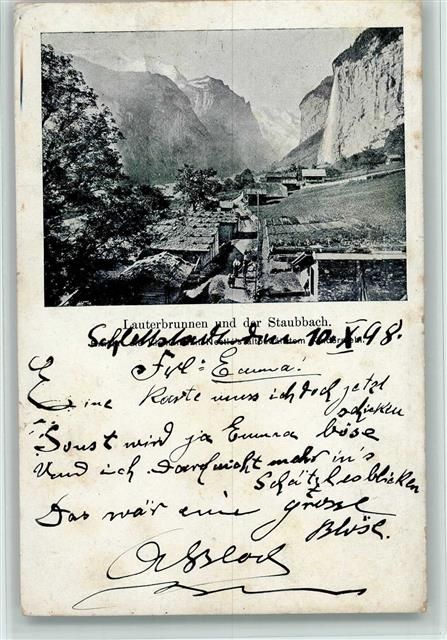 Lauterbrunnen und der Staubbach.
Schlettstadt den 10 X 98.
Frl: Emma!
Eine Karte muss ich doch jetzt
schicken
Sonst wird ja Emma böse
Und ich Darf nicht mehr in's
Schätzles blicken
Das wär eine grosse
Blöse.
ABloch